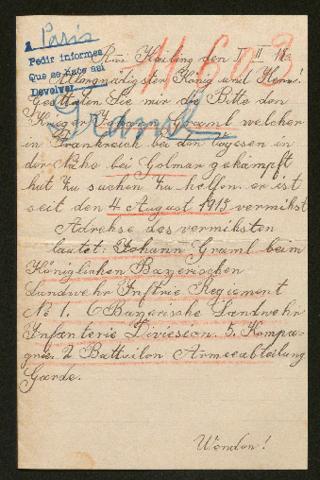 a Paris
Pedir informes
Que se hace así
Devolver
11603
Graml
den I II 18
Allergnädigster König und Herr!
Gestatten Sie mir die Bitte den
Krieger Johann Graml welcher
in Frankreich bei den Vogesen in
der Nähe bei Golmar gekämpft
hat zu suchen zu helfen. er ist
seit den 4 August 1915 vermißt
Adrehse des vermiksten
lautet: Johann Graml beim
Königlichen Bayerischen
Landwehr Inftrie Regiement
No 1. 6 Bayerische Landwehr
Infanterie Diviesion. 5. Kompa-
gnie. 2 Battailon Armeeabteilung
Garde.
Wenden!